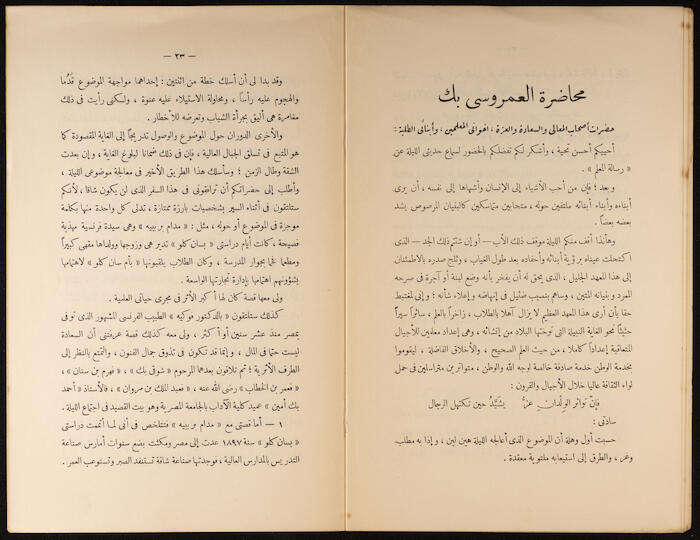 محاضرة العمروسى بك
حضرات أصحاب المعالى والسعادة والعزة ، اخوانى المعلمين ، وأبنائى الطلبة :
أحييكم أحسن تحية ، وأشكر لكم تفضلكم بالحضور لسماع حديثى الليلة عن
« رسالة المعلم » .
وبعد ؛ فإن من أحب الأشياء إلى الإنسان وأشهاها إلى نفسه ، أن يرى
أبناءه وأبناء أبنائه ملتفين حوله ، متحابين متماسكين كالبنيان المرصوص يشد
بعضه بعضاً .
وهأنذا أقف منكم الليلة موقف ذلك الأب — أو إن شئتم ذلك الجد — الذى
اكتحلت عيناه برؤية أبنائه وأحفاده بعد طول الغياب ، وثلج صدره بالاطمئنان
إلى هذا المعهد الجليل ، الذى يحق له أن يفخر بأنه وضع لبنة أو آجرة فى صرحه
الممرد وبنيانه المتين ، وساهم بنصيب ضئيل فى إنهاضه وإعلاء شأنه ؛ وإنى لمغتبط
حقا بأن أرى هذا المعهد العظيم لا يزال آهلا بالطلاب ، زاخراً بالعلم ، سائراً سيراً
حثيثاً نحو الغاية النبيلة التى توختها البلاد من إنشائه ، وهى إعداد معلمين للأجيال
المتعاقبة إعداداً كاملا ، من حيث العلم الصحيح ، والأخلاق الفاضلة ، ليقوموا
بخدمة الوطن خدمة صادقة خالصة لوجه الله والوطن ، متواترين متراسلين فى حمل
لواء الثقافة عاليا خلال الأجيال والقرون :
فإنّ تواتر الولدان عزٌّ يشيَّد حين تكتهل الرجال
سادتى :
حسبت أول وهلة أن الموضوع الذى أعالجه الليلة هين لين ، وإذا به مطلب
وعر ، والطرق إلى استيعابه ملتوية معقدة .
— ٢٣ —
وقد بدا لى أن أسلك خطة من اثنتين : إحداهما مواجهة الموضوع قُدُما
والهجوم عليه رأسا ، ومحاولة الاستيلاء عليه عنوة ، ولكنى رأيت فى ذلك
مغامرة هى أليق بجرأة الشباب وتعرضه للأخطار .
والأخرى الدوران حول الموضوع والوصول تدريجاً إلى الغاية المقصودة كما
هو المتبع فى تسلق الجبال العالية ، فإن فى ذلك ضمانا لبلوغ الغاية ، وإن بعدت
الشقة وطال الزمن ؛ وسأسلك هذا الطريق الأخير فى معالجة موضوعى الليلة ،
وأطلب إلى حضراتكم أن ترافقونى فى هذا السفر الذى لن يكون شاقا ، لأنكم
ستلتقون فى أثناء السير بشخصيات بارزة ممتازة ، تدلى كل واحدة منها بكلمة
موجزة فى الموضوع أو حوله ، مثل : « مدام بربييه » وهى سيدة فرنسية مهذبة
فصيحة ، كانت أيام دراستى « بسان كلو » تدير هى وزوجها وولداها مقهى كبيراً
ومطعما فخما بجوار المدرسة ، وكان الطلاب يلقبونها « بأم سان كلو » لاهتمامها
بشؤونهم اهتمامها بإدارة تجارتها الواسعة .
ولى معها قصة كان لها أكبر الأثر فى مجرى حياتى العلمية .
كذلك ستلتقون « بالدكتور فوكيه » الطبيب الفرنسى المشهور الذى توفى
بمصر منذ عشر سنين أو أكثر ، ولى معه كذلك قصة عرفتنى أن السعادة
ليست حتما فى المال ، وإنما قد تكون فى تذوق جمال الفنون ، والتمتع بالنظر إلى
الطرف الأثرية ؛ ثم تلاقون بعدهما المرحوم « شوقى بك » ، « فهرم بن سنان » ،
« فعمر بن الخطاب » رضى الله عنه ، « فعبد الملك بن مروان » ، فالأستاذ « أحمد
بك أمين » عميد كلية الآداب بالجامعة المصرية وهو بيت القصيد فى اجتماع الليلة .
١ — أما قصتى مع « مدام بربييه » فتتلخص فى أنى لما أتممت دراستى
« بسان كلو » سنة ١٨٩٧ عدت إلى مصر ومكثت بضع سنوات أمارس صناعة
التدريس بالمدارس العالية ، فوجدتها صناعة شاقة تستنفد الصبر وتستوعب العمر .